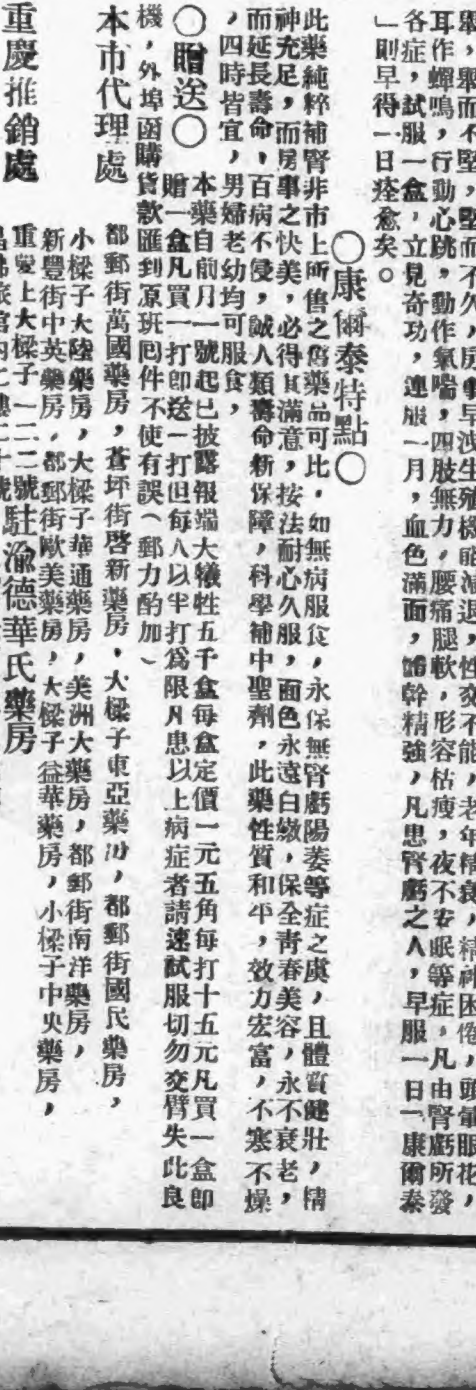 舉，舉而不堅，堅而不久，房事早洩生殖機能減退，性交不能，老年精衰，精神困倦，頭暈眼花，
耳作蟬鳴，行動心跳，動作氣喘，四肢無力，腰痛腿軟，形容枯瘦，夜不安眠等症，凡由腎虧所發
各症，試服一盒，立見奇功，連服一月，血色滿面，體幹精強，凡患腎虧之人，早服一日「康爾泰
」則早得一日痊愈矣。
○康爾泰特點○
此藥純粹補腎非市上所售之舊藥品可比，如無病服食，永保無腎虧陽萎等症之虞，且體質健壯，精
神充足，而房事之快美，必得其滿意，按法耐心久服，面色永遠白嫩，保全青春美容，永不衰老，
而延長壽命，百病不侵，誠人類壽命新保障，科學補中聖劑，此藥性質和平，效力宏富，不寒不燥
，四時皆宜，男婦老幼均可服食，
○贈送○
本藥自前月一號起已披露報端大犧牲五千盒每盒定價一元五角每打十五元凡買一盒即
贈一盒凡買一打即送一打但每人以半打爲限凡患以上病症者請速試服切勿交臂失此良
機，外埠函購貨款匯到原班回件不使有誤（郵力酌加）
本市代理處
都郵街萬國藥房，蒼坪街啓新藥房，大樑子東亞藥房，都郵街國民藥房，
小樑子大陸藥房，大樑子華通藥房，美洲大藥房，都郵街南洋藥房，
新豐街中英藥房，都郵街歐美藥房，大樑子益華藥房，小樑子中央藥房，
重慶推銷處
重慶上大樑子一二二號駐渝德華氏藥房